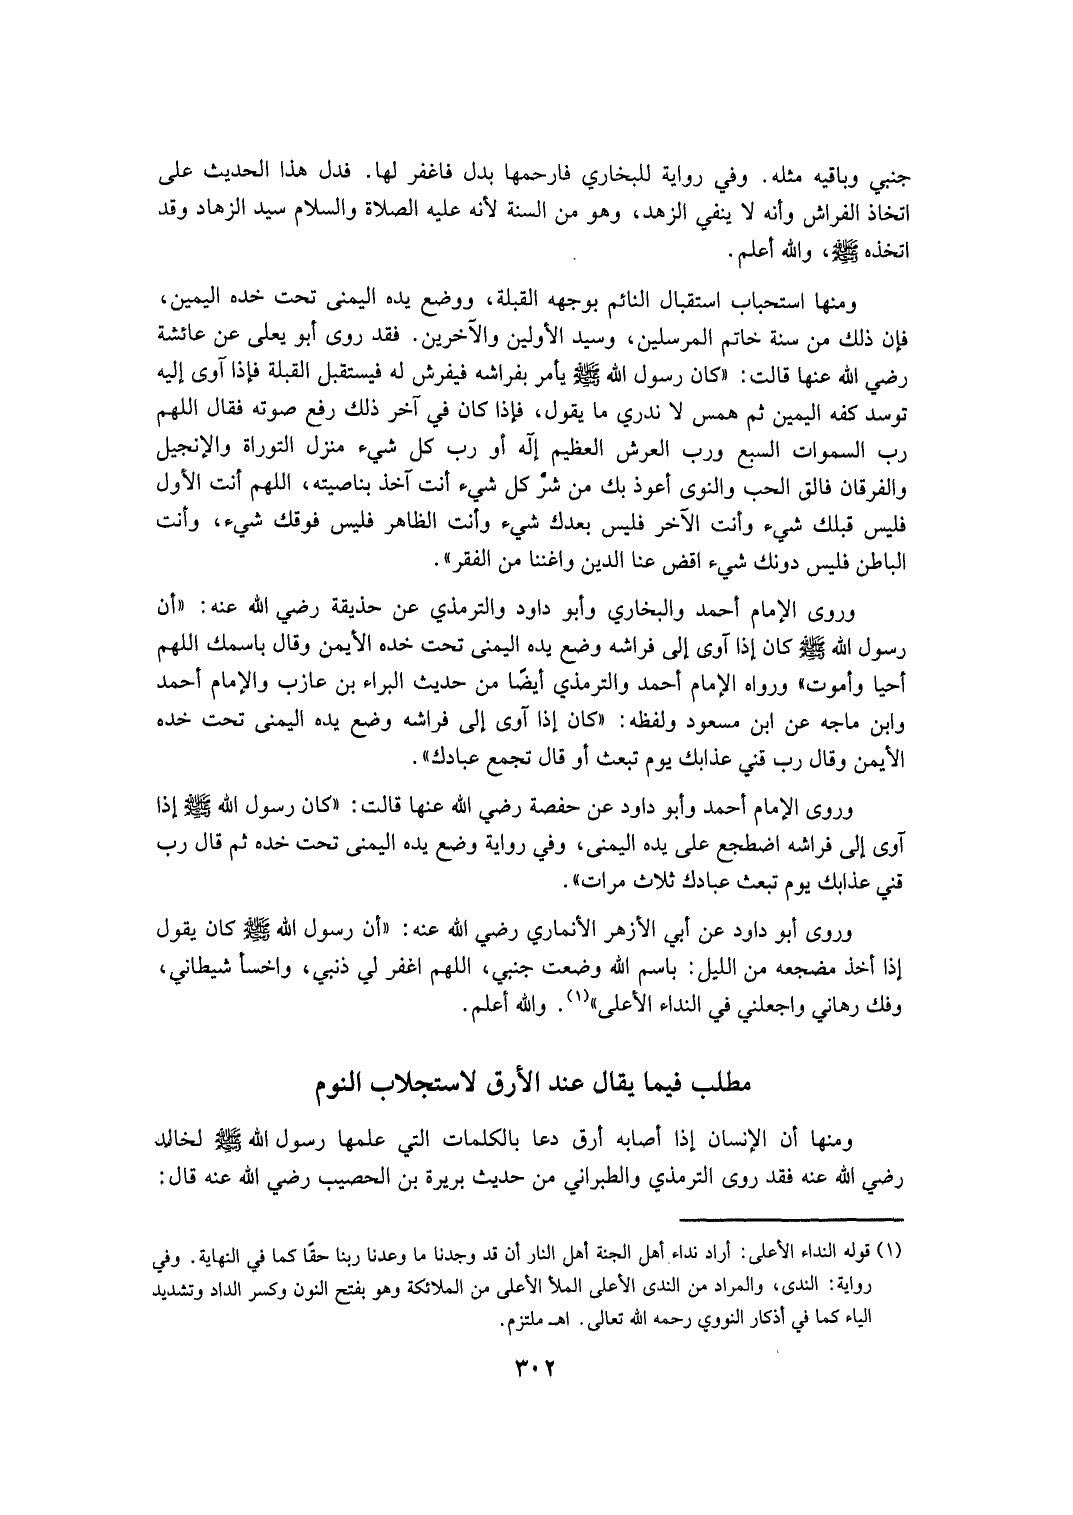 جنبي وباقيه مثله. وفي رواية للبخاري فارحمها بدل فاغفر لها. فدل هذا الحديث على
اتخاذ الفراش وأنه لا ينفي الزهد، وهو من السنة لأنه عليه الصلاة والسلام سيد الزهاد وقد
اتخذه ﷺ، والله أعلم.
ومنها استحباب استقبال النائم بوجهه القبلة، ووضع يده اليمنى تحت خده اليمين،
فإن ذلك من سنة خاتم المرسلين، وسيد الأولين والآخرين. فقد روى أبو يعلى عن عائشة
رضي الله عنها قالت: «كان رسول الله ﷺ يأمر بفراشه فيفرش له فيستقبل القبلة فإذا آوى إليه
توسد كفه اليمين ثم همس لا ندري ما يقول، فإذا كان في آخر ذلك رفع صوته فقال اللهم
رب السموات السبع ورب العرش العظيم إلٓه أو رب كل شيء منزل التوراة والإنجيل
والفرقان فالق الحب والنوى أعوذ بك من شرِّ كل شيء أنت آخذ بناصيته، اللهم أنت الأول
فليس قبلك شيء وأنت الآخر فليس بعدك شيء وأنت الظاهر فليس فوقك شيء، وأنت
الباطن فليس دونك شيء اقض عنا الدين واغننا من الفقر».
وروى الإمام أحمد والبخاري وأبو داود والترمذي عن حذيفة رضي الله عنه: «أن
رسول الله ﷺ كان إذا آوى إلى فراشه وضع يده اليمنى تحت خده الأيمن وقال باسمك اللهم
أحيا وأموت» ورواه الإمام أحمد والترمذي أيضًا من حديث البراء بن عازب والإمام أحمد
وابن ماجه عن ابن مسعود ولفظه: «كان إذا آوى إلى فراشه وضع يده اليمنى تحت خده
الأيمن وقال رب قني عذابك يوم تبعث أو قال تجمع عبادك».
وروى الإمام أحمد وأبو داود عن حفصة رضي الله عنها قالت: «كان رسول الله ﷺ إذا
آوى إلى فراشه اضطجع على يده اليمنى، وفي رواية وضع يده اليمنى تحت خده ثم قال رب
قني عذابك يوم تبعث عبادك ثلاث مرات».
وروى أبو داود عن أبي الأزهر الأنماري رضي الله عنه: «أن رسول الله ﷺ كان يقول
إذا أخذ مضجعه من الليل: باسم الله وضعت جنبي، اللهم اغفر لي ذنبي، واخسأ شيطاني،
وفك رهاني واجعلني في النداء الأعلى»(١). والله أعلم.
مطلب فيما يقال عند الأرق لاستجلاب النوم
ومنها أن الإنسان إذا أصابه أرق دعا بالكلمات التي علمها رسول الله ﷺ لخالد
رضي الله عنه فقد روى الترمذي والطبراني من حديث بريرة بن الحصيب رضي الله عنه قال:
(١) قوله النداء الأعلى: أراد نداء أهل الجنة أهل النار أن قد وجدنا ما وعدنا ربنا حقًا كما في النهاية. وفي
رواية: الندى، والمراد من الندى الأعلى الملأ الأعلى من الملائكة وهو بفتح النون وكسر الداد وتشديد
الياء كما في أذكار النووي رحمه الله تعالى. اهـ ملتزم.
٣٠٢